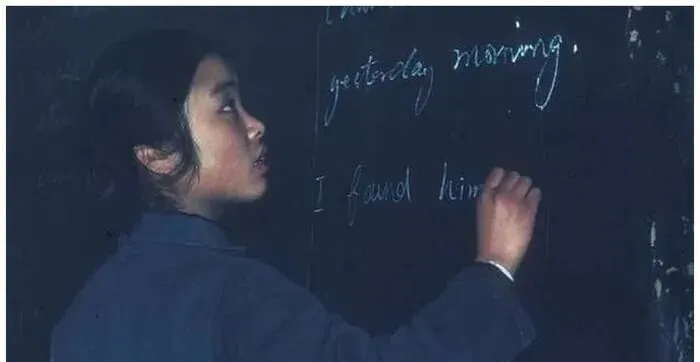 yesterday morning.
I found him